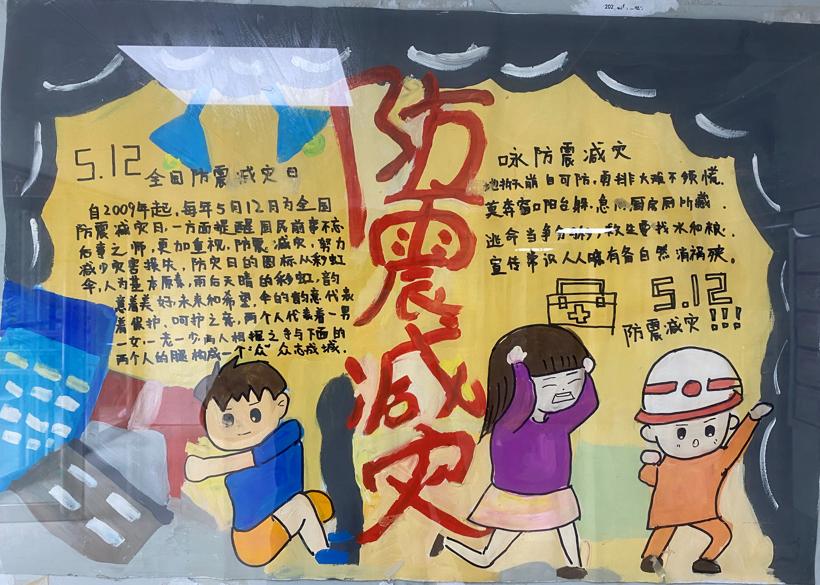 防震减灾
5.12 全国防震减灾日
自2009年起,每年5月12月为全国
防震减灾日,一方面提醒国民前事不忘
后事之师,更加重视,防震减灾,努力
减少灾害损失,防灾日的图标从彩虹
伞,人为基本原素,雨后天晴的彩虹,韵
意着美好未来和希望,伞的韵意代表
着保护、呵护之意,两个人代表着一男
一女,一老一少两人相握之手与下面的
两个人的腿构成一个“众”众志成城.
咏防震减灾
地拆天崩自可防,勇排大难不须慌.
莫奔窗口阳台躲,急 厨房厕所藏.
逃命当 找水和粮.
宣传常识人人晓有备自然消祸殃.
5.12
防震减灾!!!
202